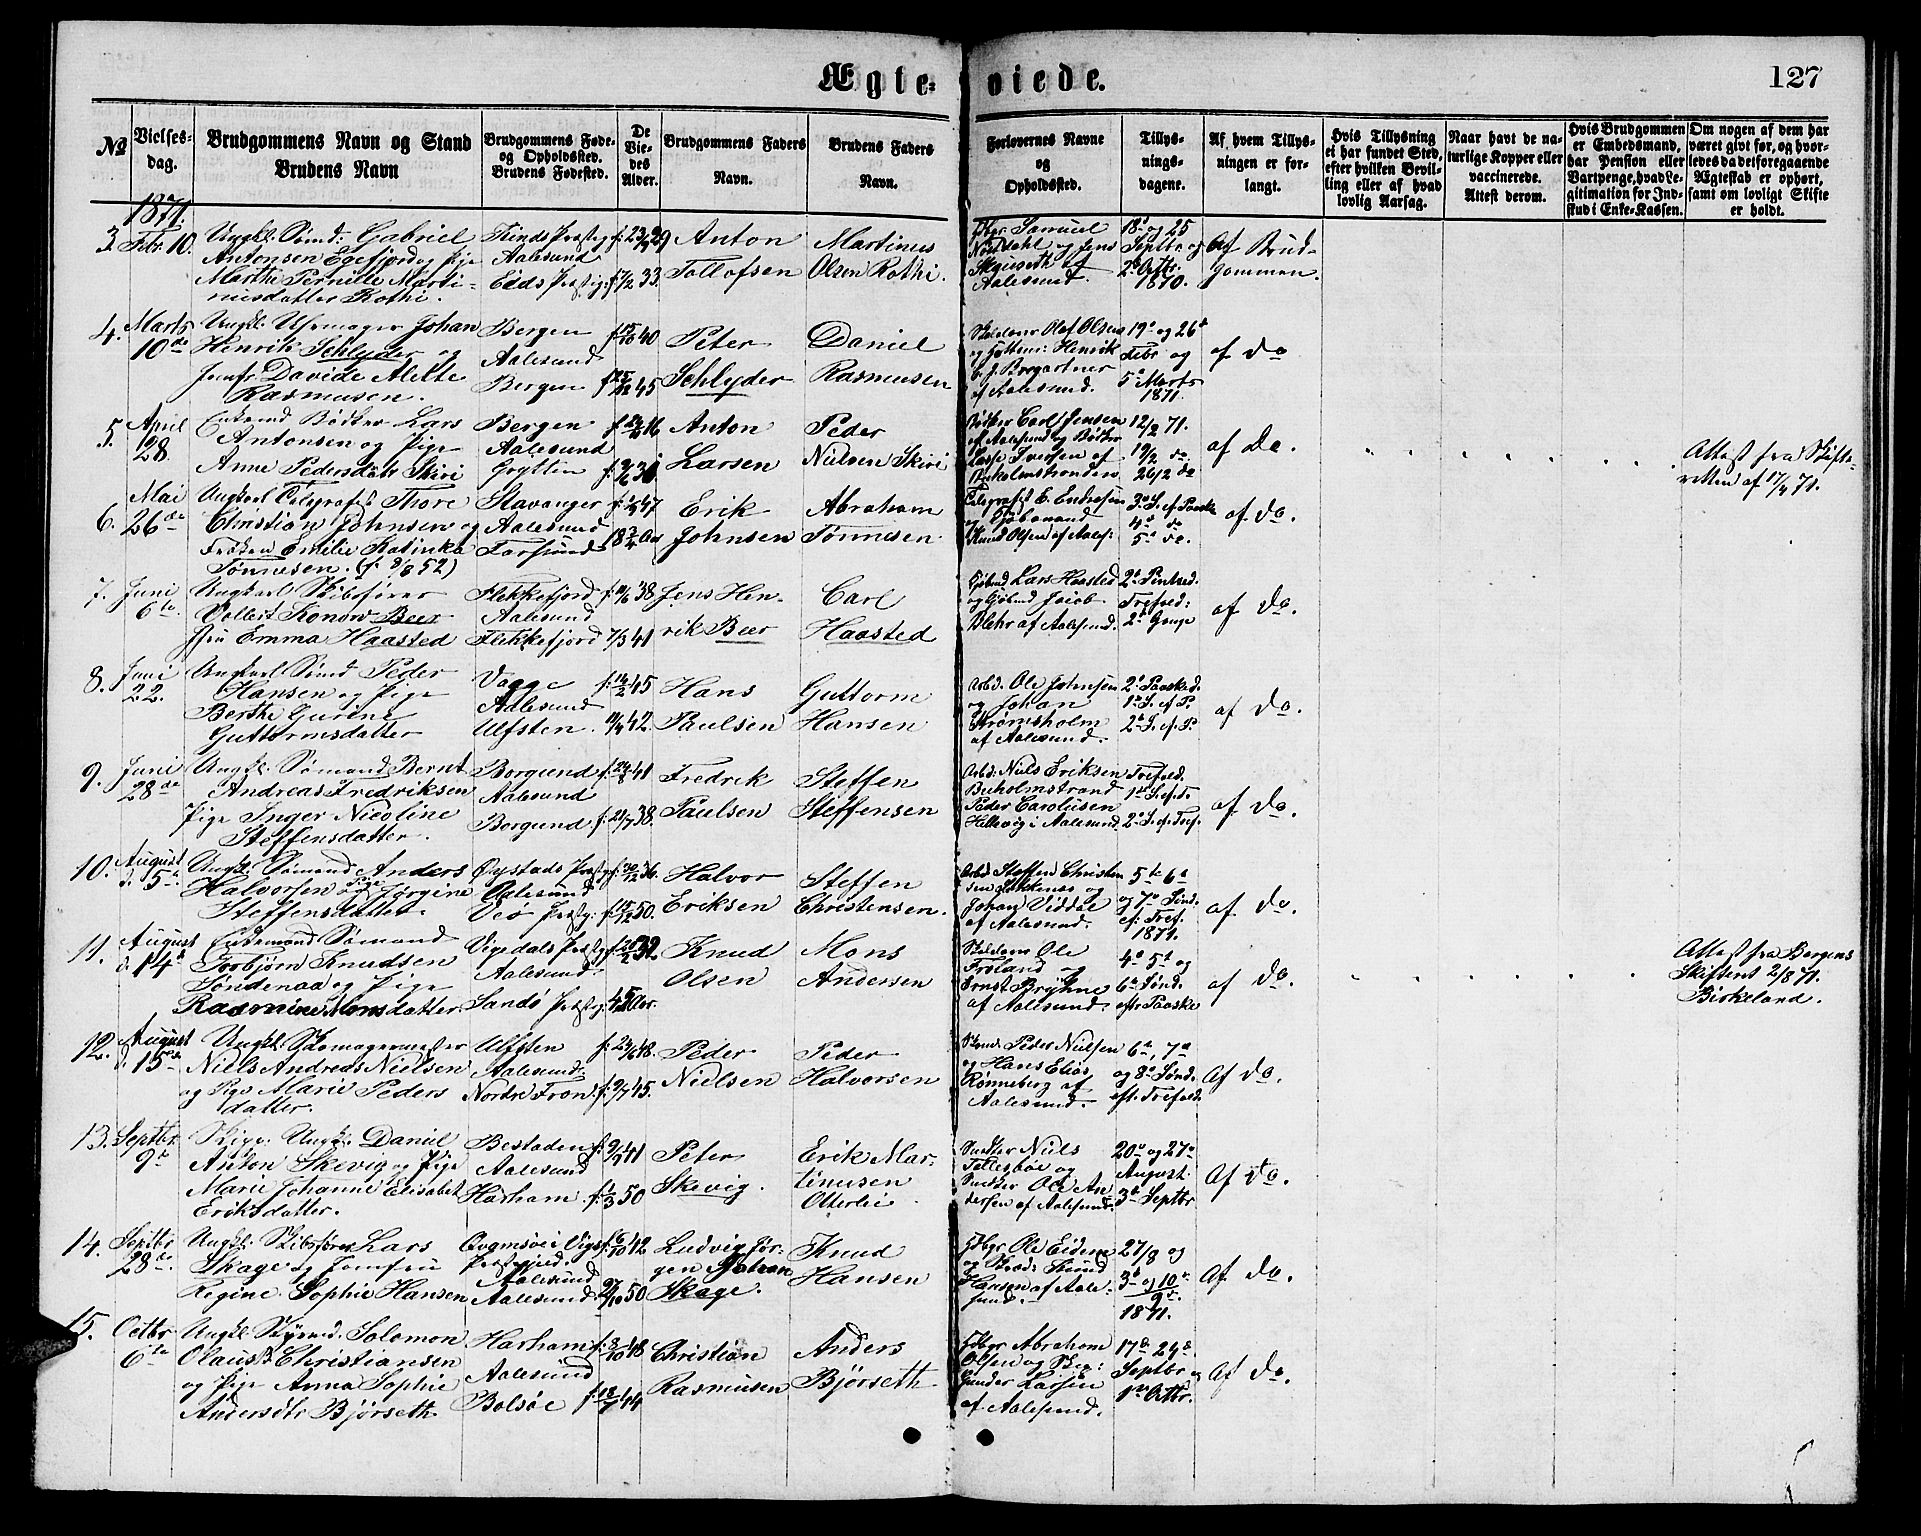 Ægte-viede.
127
№
Vielses-
dag.
Brudgommens Navn og Stand
Brudens Navn
Brudgommens Føde-
og Opholdssted.
Brudens Fødested.
De
Vie-
des
Alder.
Brudgommens Faders
Navn.
Brudens Faders
Navn.
Forlovernes Navne
og
Opholdssted.
Tillys-
nings-
dagene.
Af hvem Tillys-
ningen er for-
langt.
Hvis Tillysning
ei har fundet Sted,
efter hvilken Bevil-
ling eller af hvad
lovlig Aarsag.
Naar havt de na-
turlige Kopper eller
vaccinerede.
Attest derom.
Hvis Brudgommen
er Embedsmand,
har Pension eller
Vartpenge, hvad Le-
gitimation for Ind-
skud i Enke-Kassen.
Om nogen af dem har
været givt før, og hvor-
ledes da det foregaaende
Ægteskab er ophørt,
samt om lovligt Skifte
er holdt.
1871.
3. Febr. 10.
Ungkl. Sømd: Gabriel
Antonsen Egefjord og Pige
Marthe Pernille Marti-
nusdatter Rothi.
Aalesund
Eids Præstg:
Anton
Tollofsen
Martinus
Olsen Rothi.
Samuel
og Jens
af
Aalesund.
18de og 25
Septbr og
2d Octbr.
1870.
Af Brud-
gommen.
4. Marts
10de
Ungkl. Uhrmager Johan
Henrik Schlyder og
Jomfr. Davide Alette
Rasmusen.
Bergen
Aalesund
Bergen
Peter
Schlyder
Daniel
Rasmusen
Olaf Olsen
Henrik
af Aalesund.
19de og 26de
Febr og
5te Marts
1871.
af do
5. April
28.
Enkemd Bødker Lars
Antonsen og Pige
Anne Pedersdatt Skiri
Bergen
Aalesund
Grytten
Anton
Larsen
Peder
Nielsen Skiri
Bødker Carl Jensen
af Aalesund og Bødker
Lasse Iversen af
12/2 71.
19/2 do
26/2 do
af do.
Attest fra Skifte-
retten af 17/4 71.
6. Mai
26de
Ungkarl Telegrafist Thore
Christian Johnsen og
Frøken Emilie Katinka
Tønnesen. (f. 8/8 52)
Stavanger
Aalesund
Farsund
18 3/4 Aar
Erik
Johnsen
Abraham
Tønnesen
Telegrafist E. Endresen
og Kjøbmand
Knud Olsen af Aales:
3d S. ef. Paaske
4d do
5d do.
af do.
7. Juni
6te.
Ungkarl Skibsfører
Vollert Konow Beer
Jfru Emma Haasted
Flekkefjord
Aalesund
Flekkefjord
Jens Hen-
rik Beer
Carl
Haasted
Kjøbmd Lars Haasted
og Kjøbmd Jacob
Blehr af Aalesund.
2d Pintsed.
Trefold:
2d Gange
af do.
8. Juni
22.
Ungkarl Sømd Peder
Hansen og Pige
Berthe Gurine
Guttormsdatter
Aalesund
Ulfsten.
Hans
Paulsen
Guttorm
Hansen
Arbd. Ole Johnsen
og Johan
Strømsholm
af Aalesund.
2d Paasked.
1d S. ef. P.
2d S. ef. P.
af do.
9. Juni
28de
Ungkl. Sømand Bernt
Andreas Fredriksen
Pige Inger Nicoline
Steffensdatter.
Borgund
Aalesund
Borgund
Fredrik
Paulsen
Steffen
Steffensen
Arbd. Niels Eriksen
Buholmstrand
Peder Carolusen
Hellevig i Aalesund
Trefold.
1d S. ef. T.
2d S. ef. Tref.
af do.
10. August
d. 5te.
Ungkl. Sømand Anders
Halvorsen og Pige Jørgine
Steffensdatter.
Aalesund
Veø Præstg:
Halvor
Eriksen
Steffen
Christensen.
Arbd Steffen Christen
sen og
Johan Viddal
af Aalesund.
5te 6te
og 7de Sønd.
ef: Tref.
1871.
af do.
11. August
d. 14de
Enkemand Sømand
Torbjørn Knudsen
Søndenaa og Pige
Rasmine Monsdatter
Vigedals Præstg
Aalesund.
Sandø Præstg:
Knud
Olsen
Mons
Andersen
Ole
Frøland og
Ernst Bryhne
af Aalesund.
4d 5te og
6te Sønd.
eftr Paaske
af do.
Attest fra Bergens
Skifteret 2/8 71.
Birkeland.
12. August
d. 15de
Ungkl. Skomagermester
Niels Andreas Nielsen
og Pige Marie Peders
datter.
Ulfsten
Aalesund.
Nordre Fron.
Peder
Nielsen
Peder
Halvorsen
Peder Nielsen
og Hans Elias
Rønneberg af
Aalesund.
6te, 7de
og 8de Sønd.
eft. Trefold.
Af do.
13. Septbr.
9de
Ungk. Daniel
Anton Skevig og Pige
Marie Johanne Elisabet
Eriksdatter.
Aalesund
Harham
Peter
Skevig.
Erik Mar-
tinusen
Otterlei
Niels
Tellesbøe og
Ole An
dersen af Aalesund.
20de og 27de
August
3d Septbr
Af do.
14. Septbr
28de.
Ungkl. Skibsfører Lars
Skage og Jomfru
Regine Sophie Hansen
Aalesund
Aalesund.
Ludvig Jør-
gen Johan
Skage.
Knud
Hansen
Ole Eidem
og Knud
Hansen af Aale-
sund.
27/8 og
3d og 10de
9de.
1871.
Af do.
15. Octbr
6te
Ungkl. Solomon
Olaus Christiansen
og Pige Anna Sophie
Andersdtr Bjørseth.
Harham
Aalesund
Bolsøe
Christian
Rasmusen
Anders
Bjørseth
Abraham
Olsen og
Gunder Larsen
af Aalesund.
17de 24de
Septbr og
1ste Octbr.
Af do.